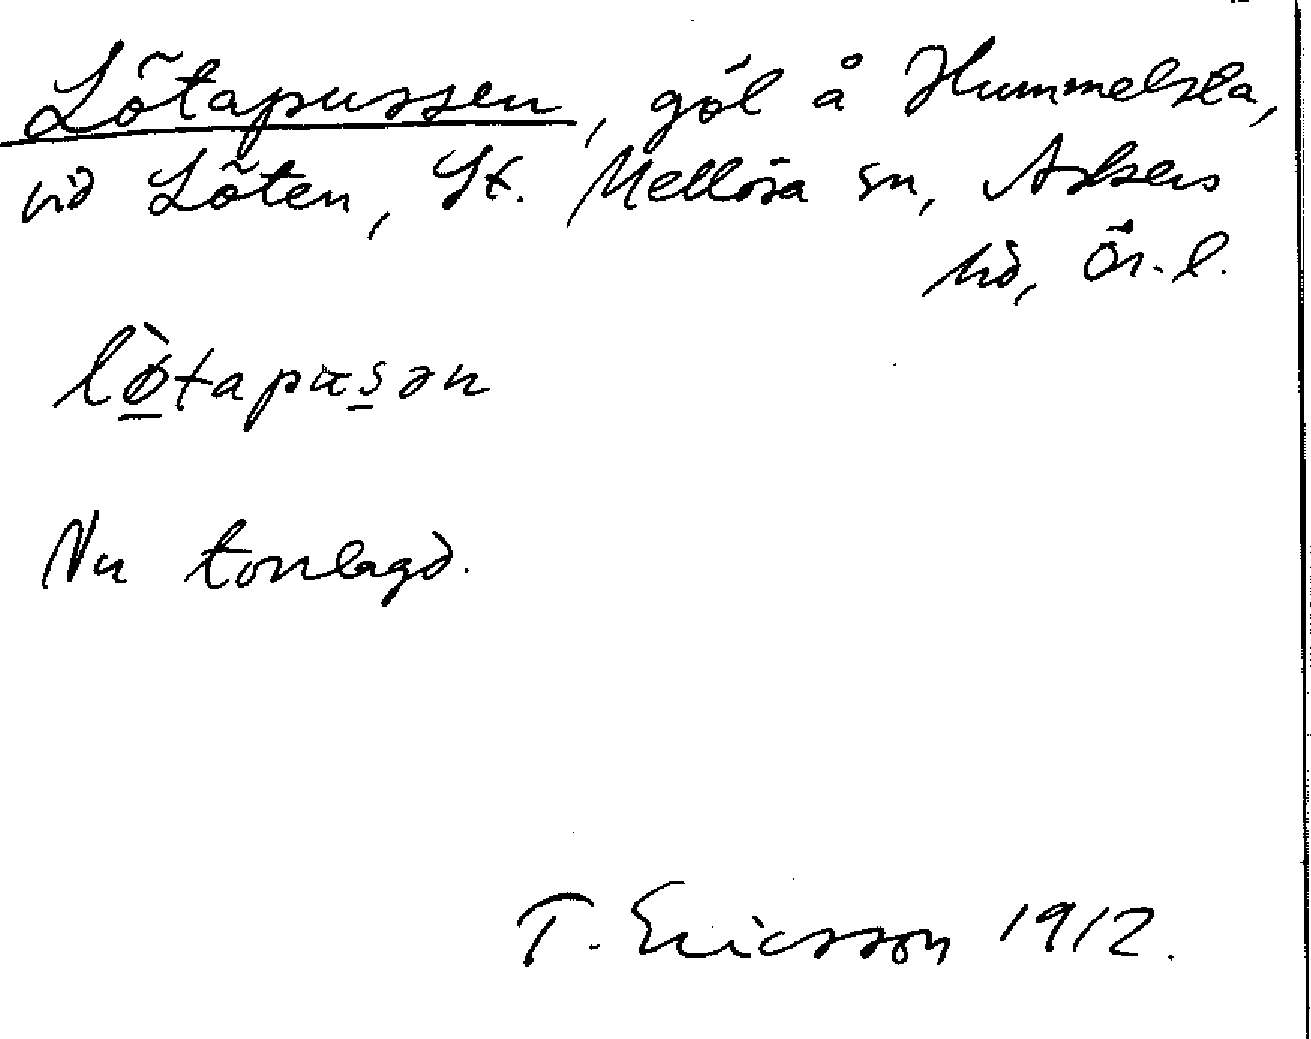 Lötapussen, göl å Hummelsta,
vid Löten, St. Mellösa sn, Askers
hd, Ör. l.
lø̀tapusən
Nu torrlagd.
T. Ericsson 1912.